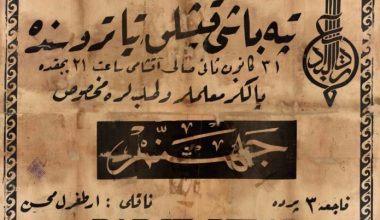 تپه باشی قیشلق تیاتروسنده
٣١ كانون ثانی صالی آقشامی ساعت ٢١ بچقده
یالكز معلملر و طلبه لره مخصوص
جهنم
فاجعه ٣ پرده
ناقلی : ارطغرل محسن